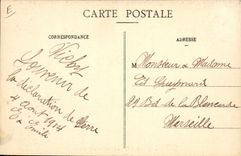 E
CARTE POSTALE
CORRESPONDANCE
ADRESSE
Vichy
Souvenir de
la déclaration de Guerre
4 Aout 1914
Emile
Monsieur & Madame
Et
29 Bd de la Blancarde
Marseille